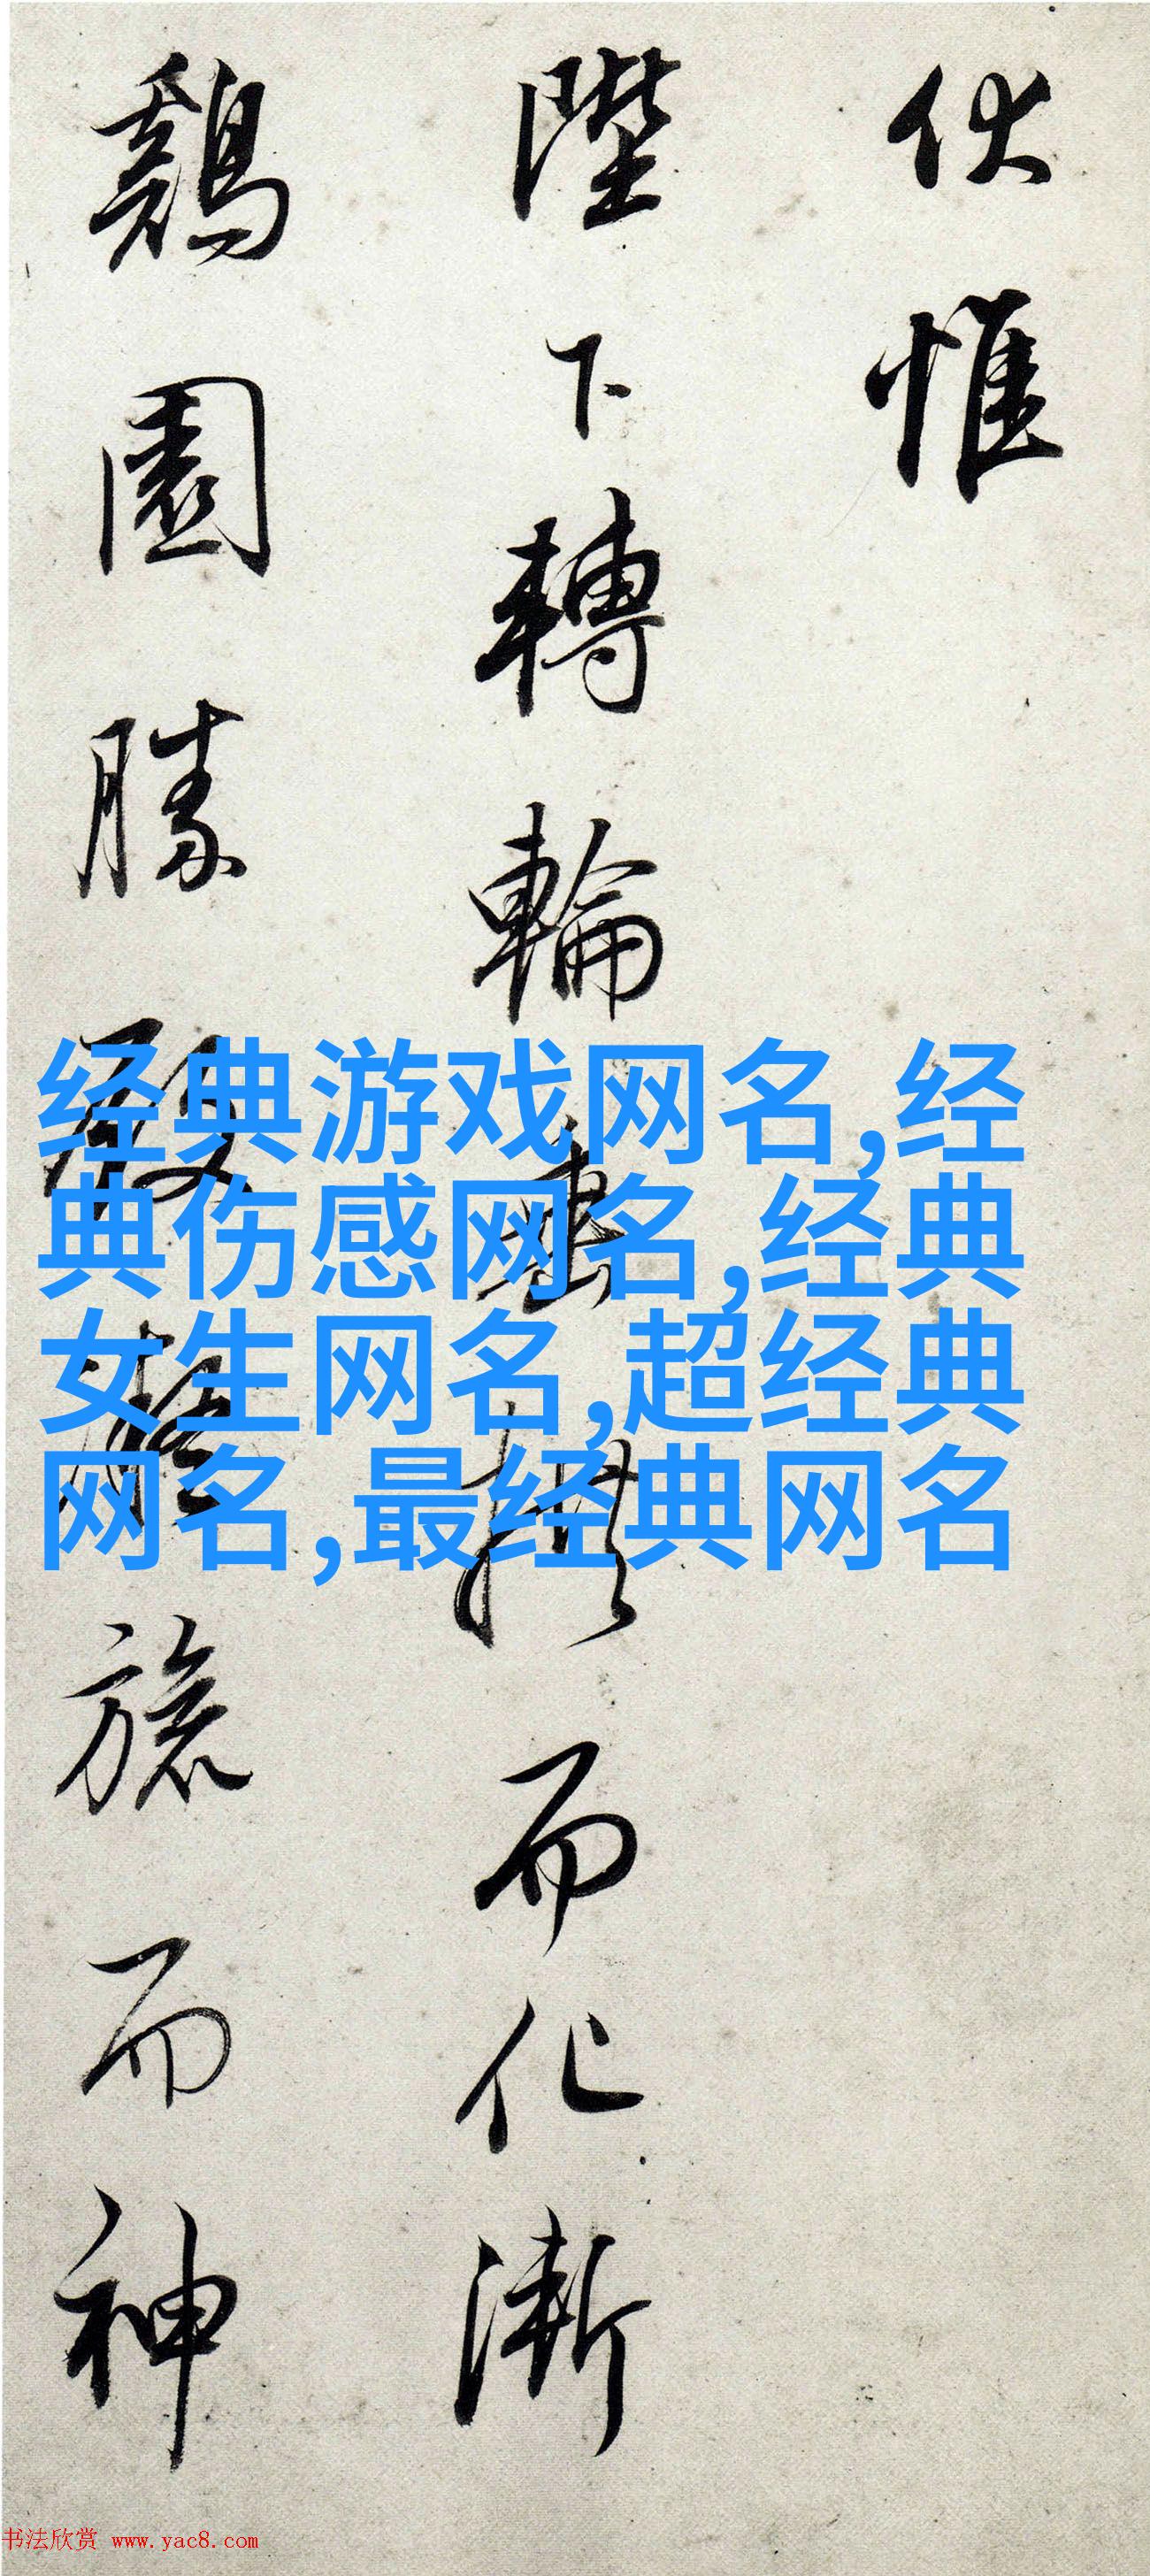 伏惟
陛下轉輪垂拱而化漸
鷄園勝殿凝旒而神
经典游戏网名,经
典伤感网名,经典
女生网名,超经典
网名,最经典网名
书法欣赏 www.yac8.com